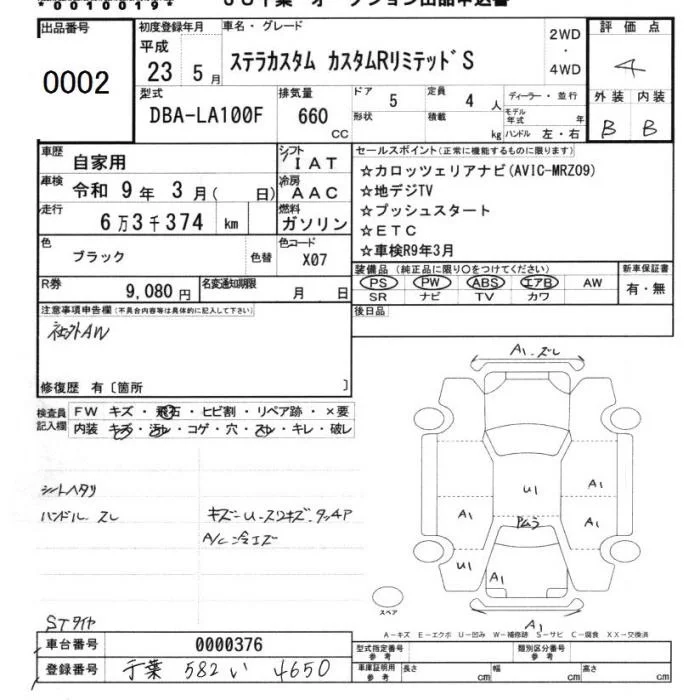 00100191
JU千葉 オークション出品申込書
出品番号 初度登録年月 車名・グレード 評価点
0002 平成 23 5月 ステラカスタム カスタムRリミテッド S 2WD・4WD 4
型式 排気量 ドア 定員 ディーラー・並行 外装 内装
DBA-LA100F 660 CC 5 4 人 B B
形状 積載 kg モデル年式 年 ハンドル 左・右
車歴 自家用 シフト IAT セールスポイント(正常に機能するものに限ります)
車検 令和 9年 3月( 日) 冷房 AAC ☆カロッツェリアナビ(AVIC-MRZ09)
☆地デジTV
走行 6万3千374 km 燃料 ガソリン ☆プッシュスタート
☆ETC
色 ブラック 色替 色コード X07 ☆車検R9年3月
装備品(純正品に限り○をつけてください) 新車保証書
R券 9,080円 名変通知期限 月 日 PS PW ABS エアB AW 有・無
SR ナビ TV カワ
注意事項申告欄(不具合内容等は具体的に記入して下さい) 後日品
社外AW
修復歴 有〔箇所 〕
検査員記入欄 FW キズ・飛石・ヒビ割・リペア跡・×要
内装 キズ・汚レ・コゲ・穴・スレ・キレ・破レ
シートヘタリ
ハンドル スレ キズ-U-スリキズ タッチP
A1.ズレ
U1
A1
A1
A1
U1
A1
スペア
STタイヤ A1
A-キズ E-エクボ U-凹み W-補修跡 S-サビ C-腐食 XX-交換済
車台番号 0000376 型式指定番号 参考 類別区分番号 参考
登録番号 千葉 582 い 4650 車庫証明用 参考 長さ cm 幅 cm 高さ cm